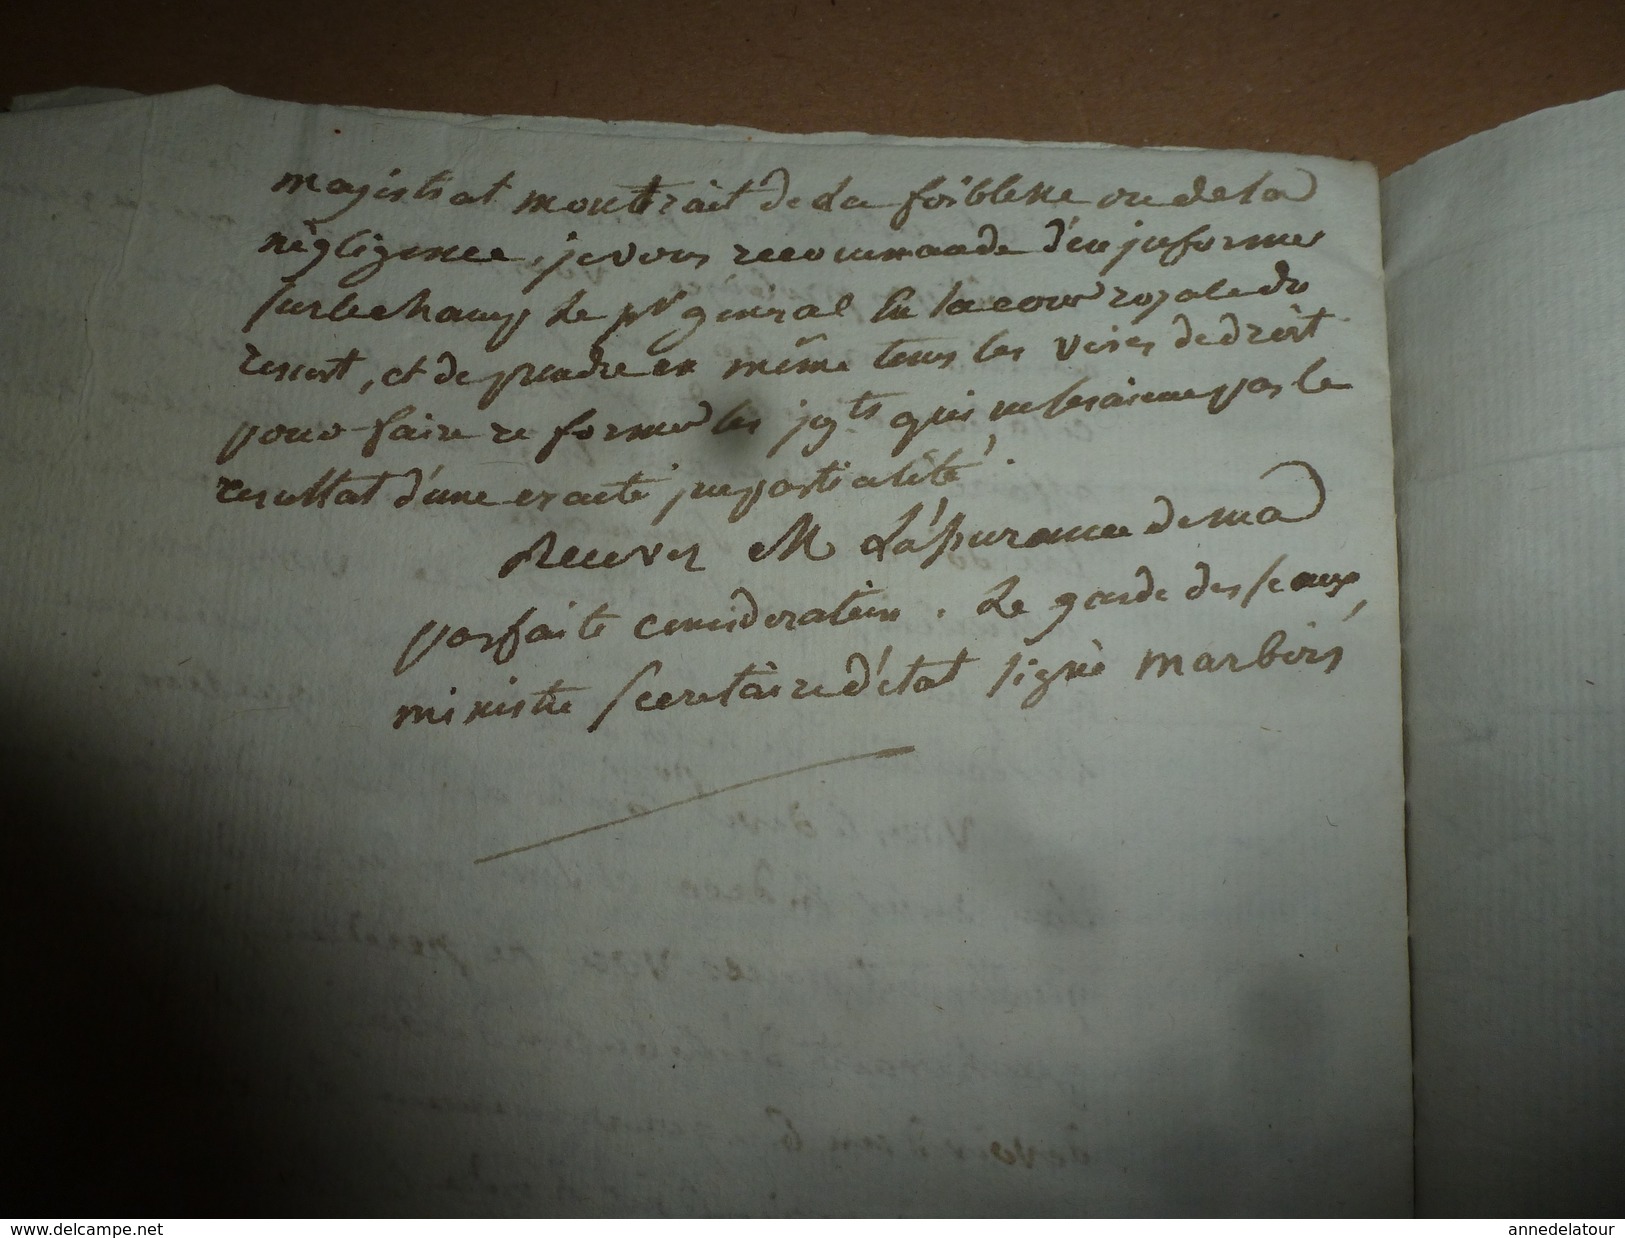 magistrat montrait de La foiblesse ou de la
négligence, je vous recommande d'en informer
sur le champ Le pr général en la cour royale du
ressort, et de prendre en même tems les voies de droit
pour faire reformer les jgts qui ne seraient pas le
resultat d'une exacte impartialité
Recevez M L'assurance de ma
parfaite consideration. Le garde des sceaux,
ministre secretaire d'état signé marbois
www.delcampe.net
annedelatour